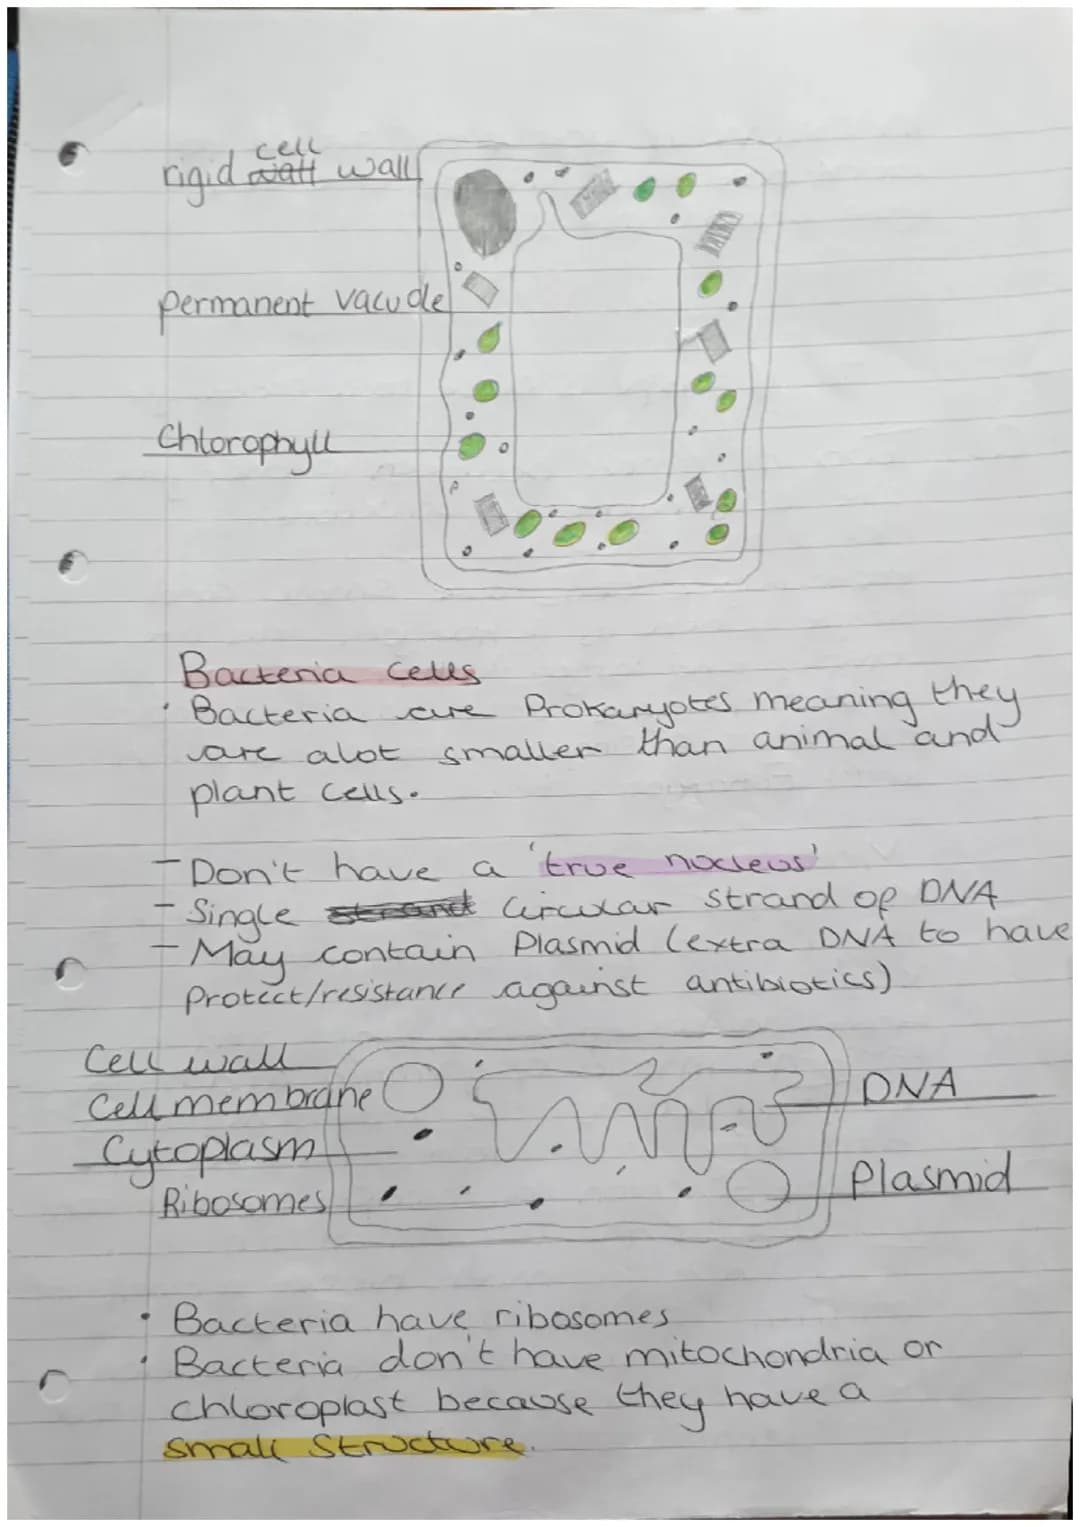 cell
rigid wall wall
permanent vacuole
Chlorophyll
Bacteria cells
· Bacteria are Prokaryotes meaning they
are alot smaller than animal and
plant cells.
- Don't have a 'true nucleus'
- Single strand circular strand of DNA
- May contain Plasmid (extra DNA to have
Protect/resistance against antibiotics)
Cell wall
Cell membrane
DNA
Cytoplasm
Plasmid
Ribosomes
· Bacteria have ribosomes
· Bacteria don't have mitochondria or
chloroplast because they have a
small structure.